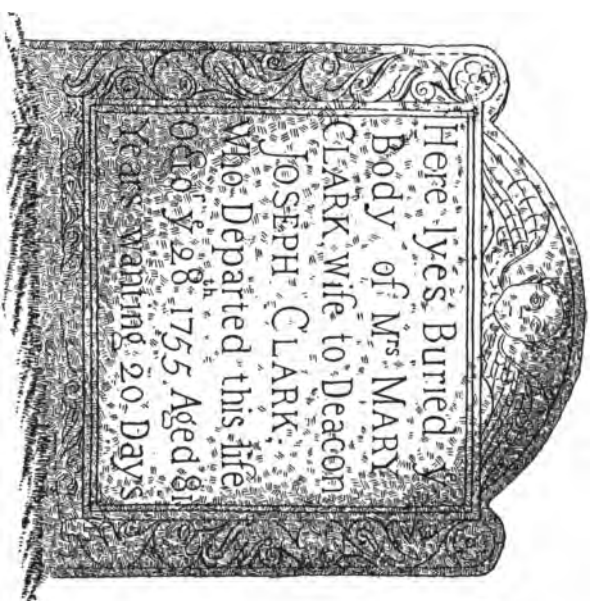 Here lyes Buried yᵉ
Body of Mʳˢ MARY
CLARK, Wife to Deacon
JOSEPH CLARK,
who Departed this life
Octoʳ yᵉ 28ᵗʰ 1755 Aged 81
Years wanting 20 Days